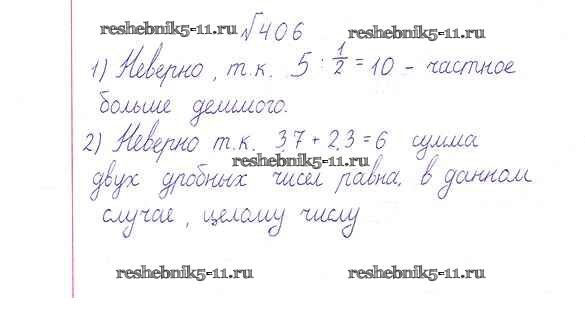 reshebnik5-11.ru reshebnik5-11.ru
№406
1) Неверно, т.к. 5 : 1/2 = 10 - частное
больше делимого.
2) Неверно т.к. 3,7 + 2,3 = 6 сумма
reshebnik5-11.ru
двух дробных чисел равна, в данном
случае, целому числу
reshebnik5-11.ru reshebnik5-11.ru